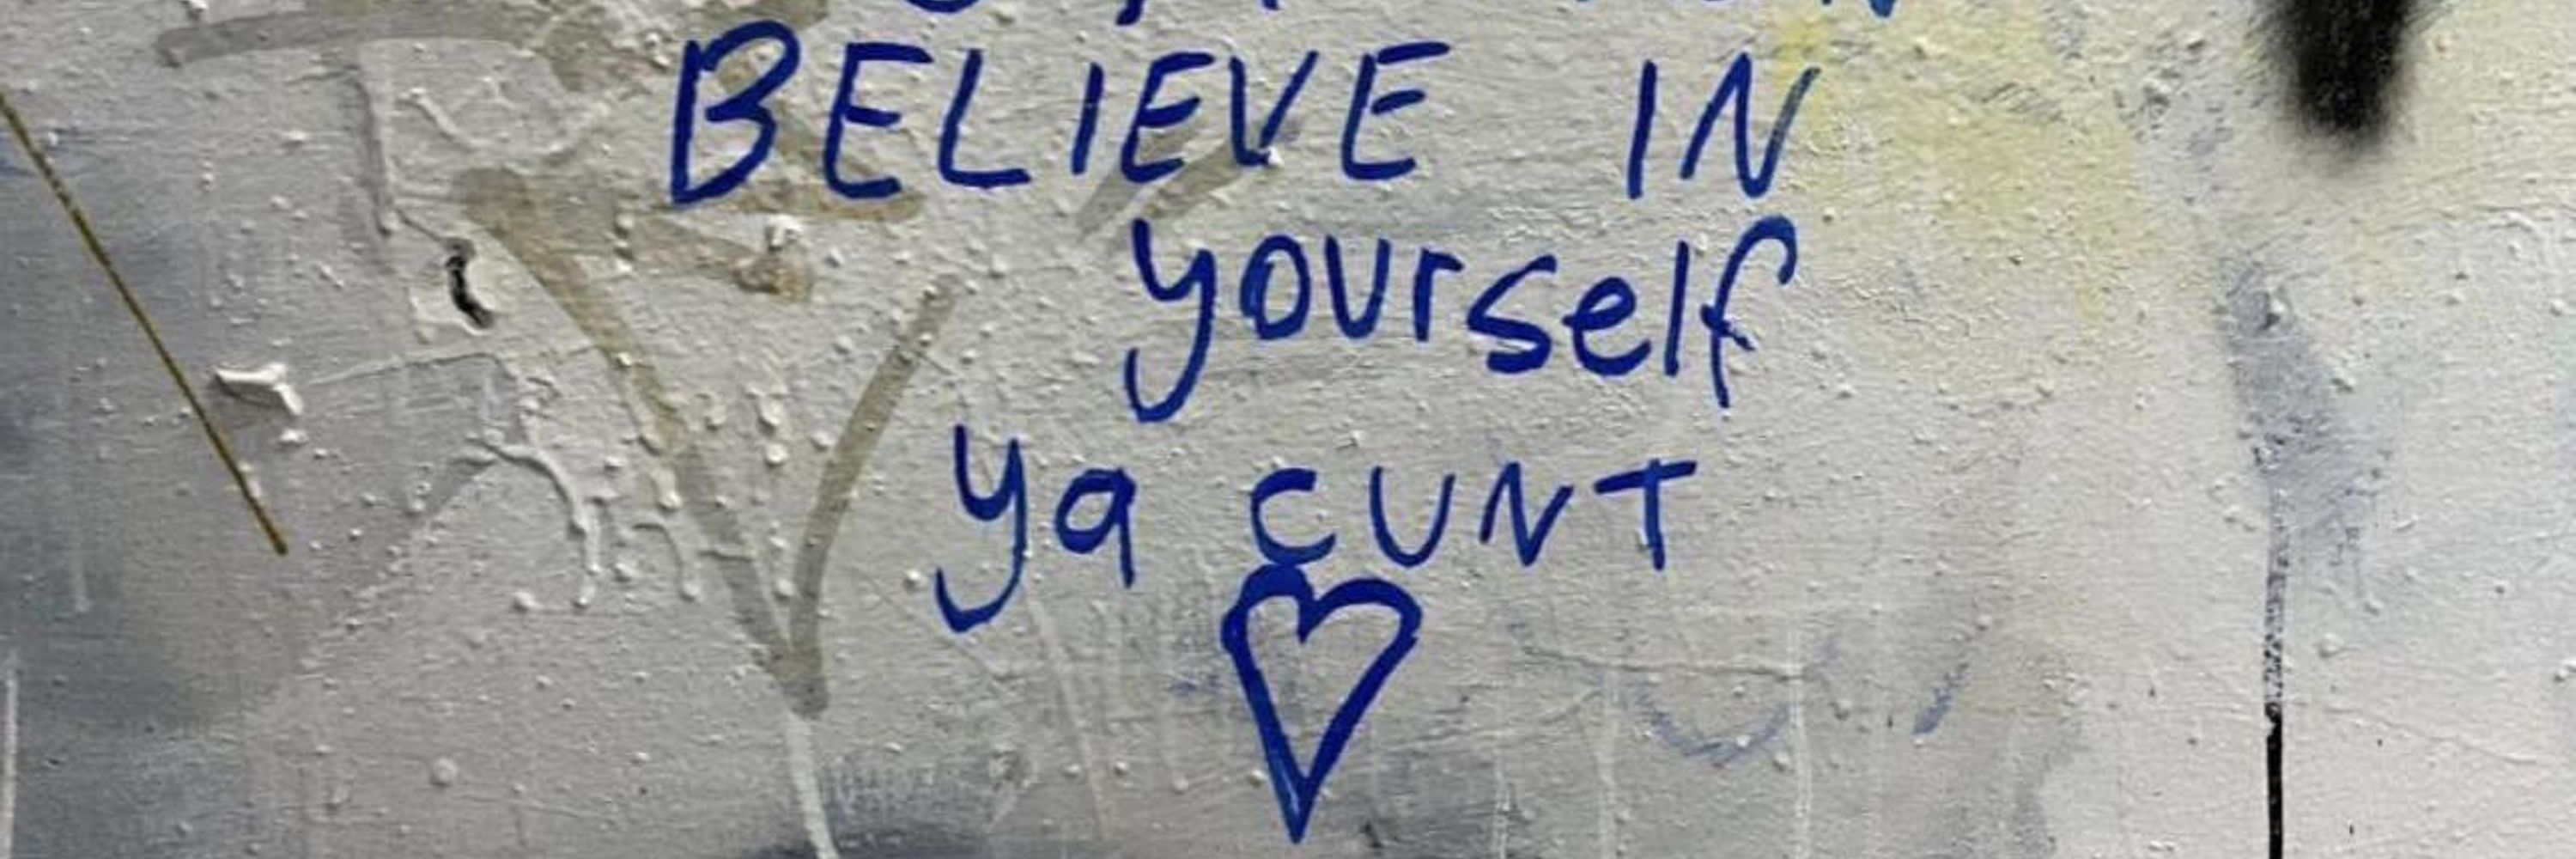 BELIEVE IN
yourself
ya CUNT